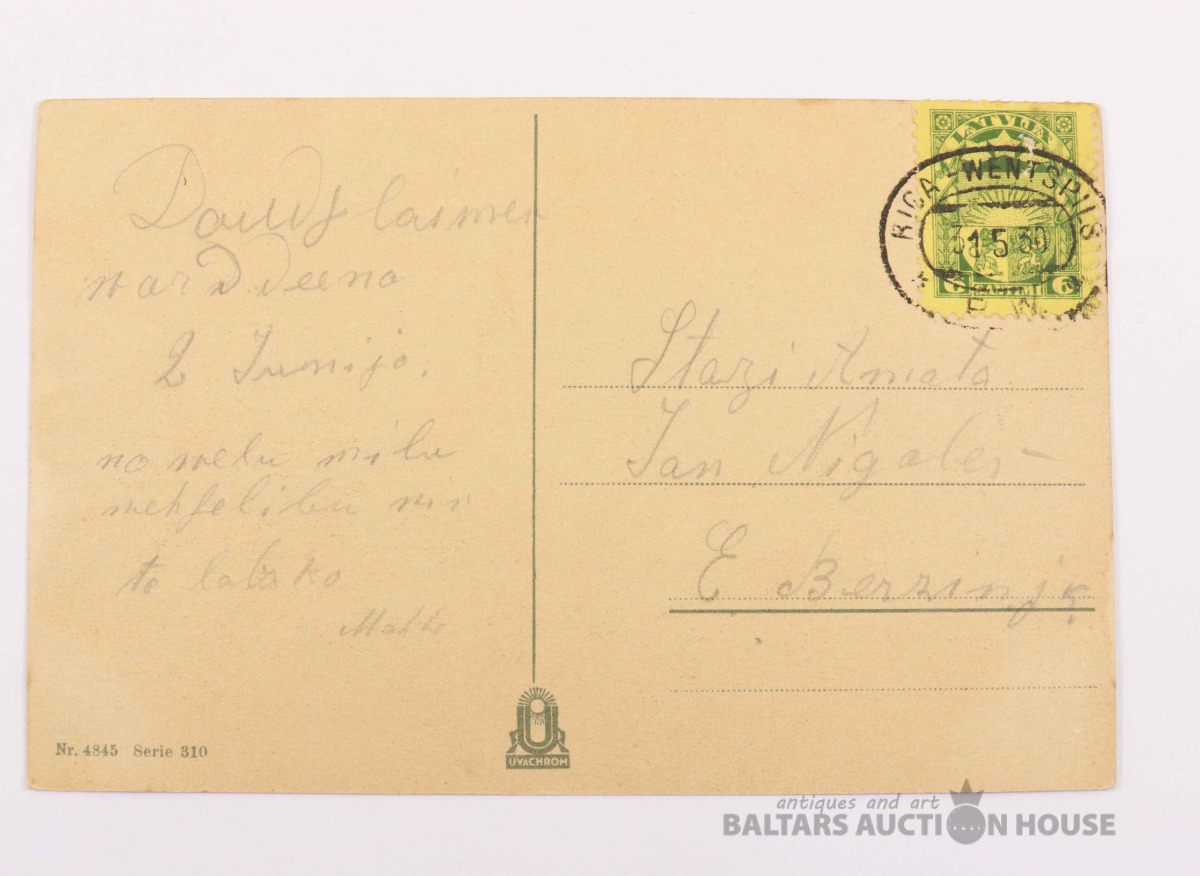 Daudz laimes
warddeena
2 Junijo.
no welu milu
wekselibu wis
to labako
LATVIJA
RIGA - WENTSPILS
31 5 30
P. W.
6 6
Stazi Amata
Jan Nigales
E Berzinje
Nr. 4845 Serie 310
UVACHROM
antiques and art
BALTARS AUCTION HOUSE